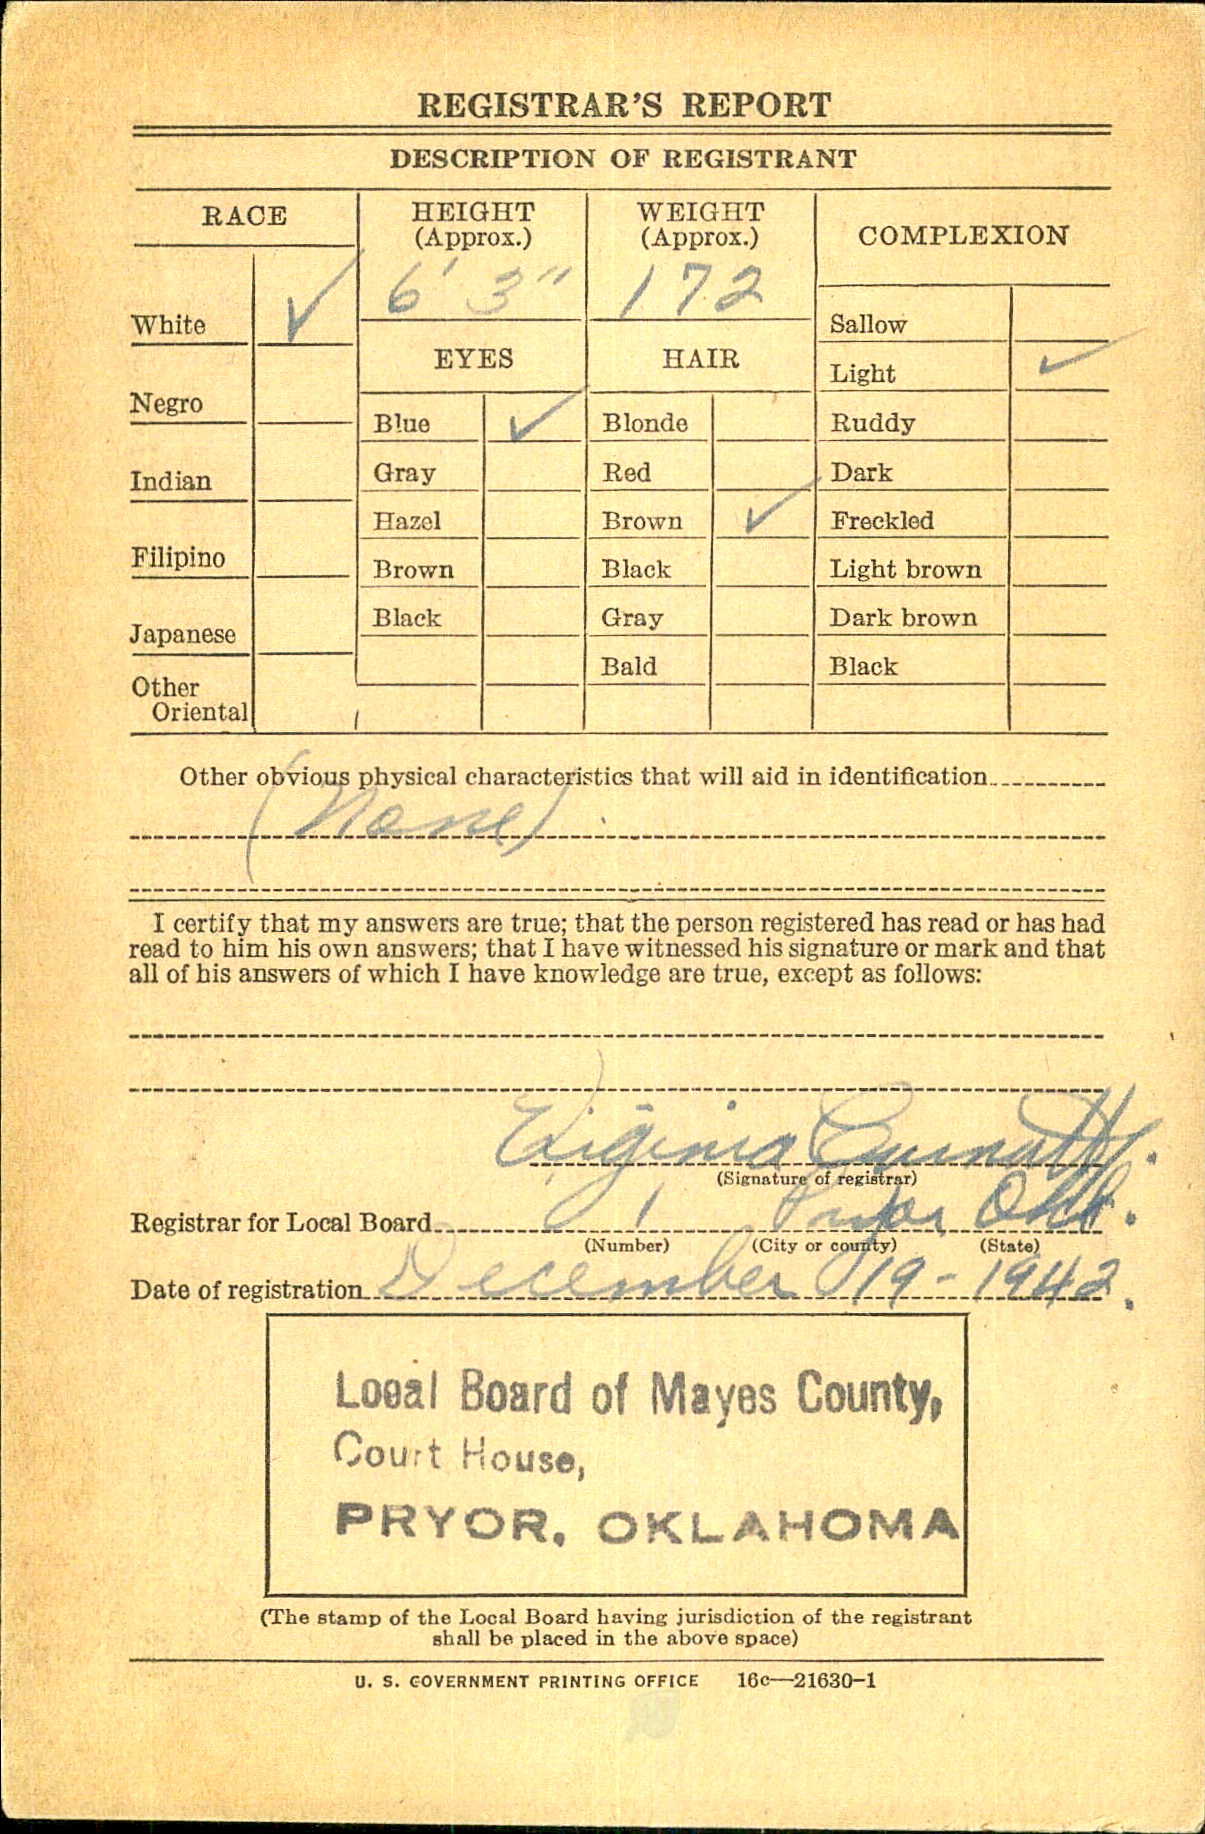 REGISTRAR'S REPORT
DESCRIPTION OF REGISTRANT
RACE
HEIGHT
(Approx.)
WEIGHT
(Approx.)
COMPLEXION
6' 3"
172
White ✓
EYES
HAIR
Sallow
Light ✓
Negro
Blue ✓
Blonde
Ruddy
Indian
Gray
Red
Dark
Hazel
Brown ✓
Freckled
Filipino
Brown
Black
Light brown
Japanese
Black
Gray
Dark brown
Bald
Black
Other
Oriental
Other obvious physical characteristics that will aid in identification
(None)
I certify that my answers are true; that the person registered has read or has had
read to him his own answers; that I have witnessed his signature or mark and that
all of his answers of which I have knowledge are true, except as follows:
Virginia
(Signature of registrar)
Registrar for Local Board 1 Pryor Okla.
(Number) (City or county) (State)
Date of registration December 19-1942.
Local Board of Mayes County,
Court House,
PRYOR, OKLAHOMA
(The stamp of the Local Board having jurisdiction of the registrant
shall be placed in the above space)
U. S. GOVERNMENT PRINTING OFFICE 16c—21630-1